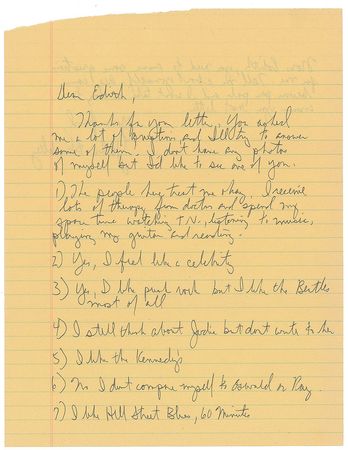 Dear Edwin,
Thanks for your letter. You asked
me a lot of questions and I'll try to answer
some of them. I don't have any photos
of myself but I'd like to see one of you.
1) The people here treat me okay. I receive
lots of therapy from doctors and spend my
spare time watching T.V., listening to music,
playing my guitar and reading.
2) Yes, I feel like a celebrity
3) Yes, I like punk rock but I like the Beatles
most of all
4) I still think about Jodie but don't write to her
5) I like the Kennedys
6) No I don't compare myself to Oswald or Ray.
7) I like Hill Street Blues, 60 Minutes